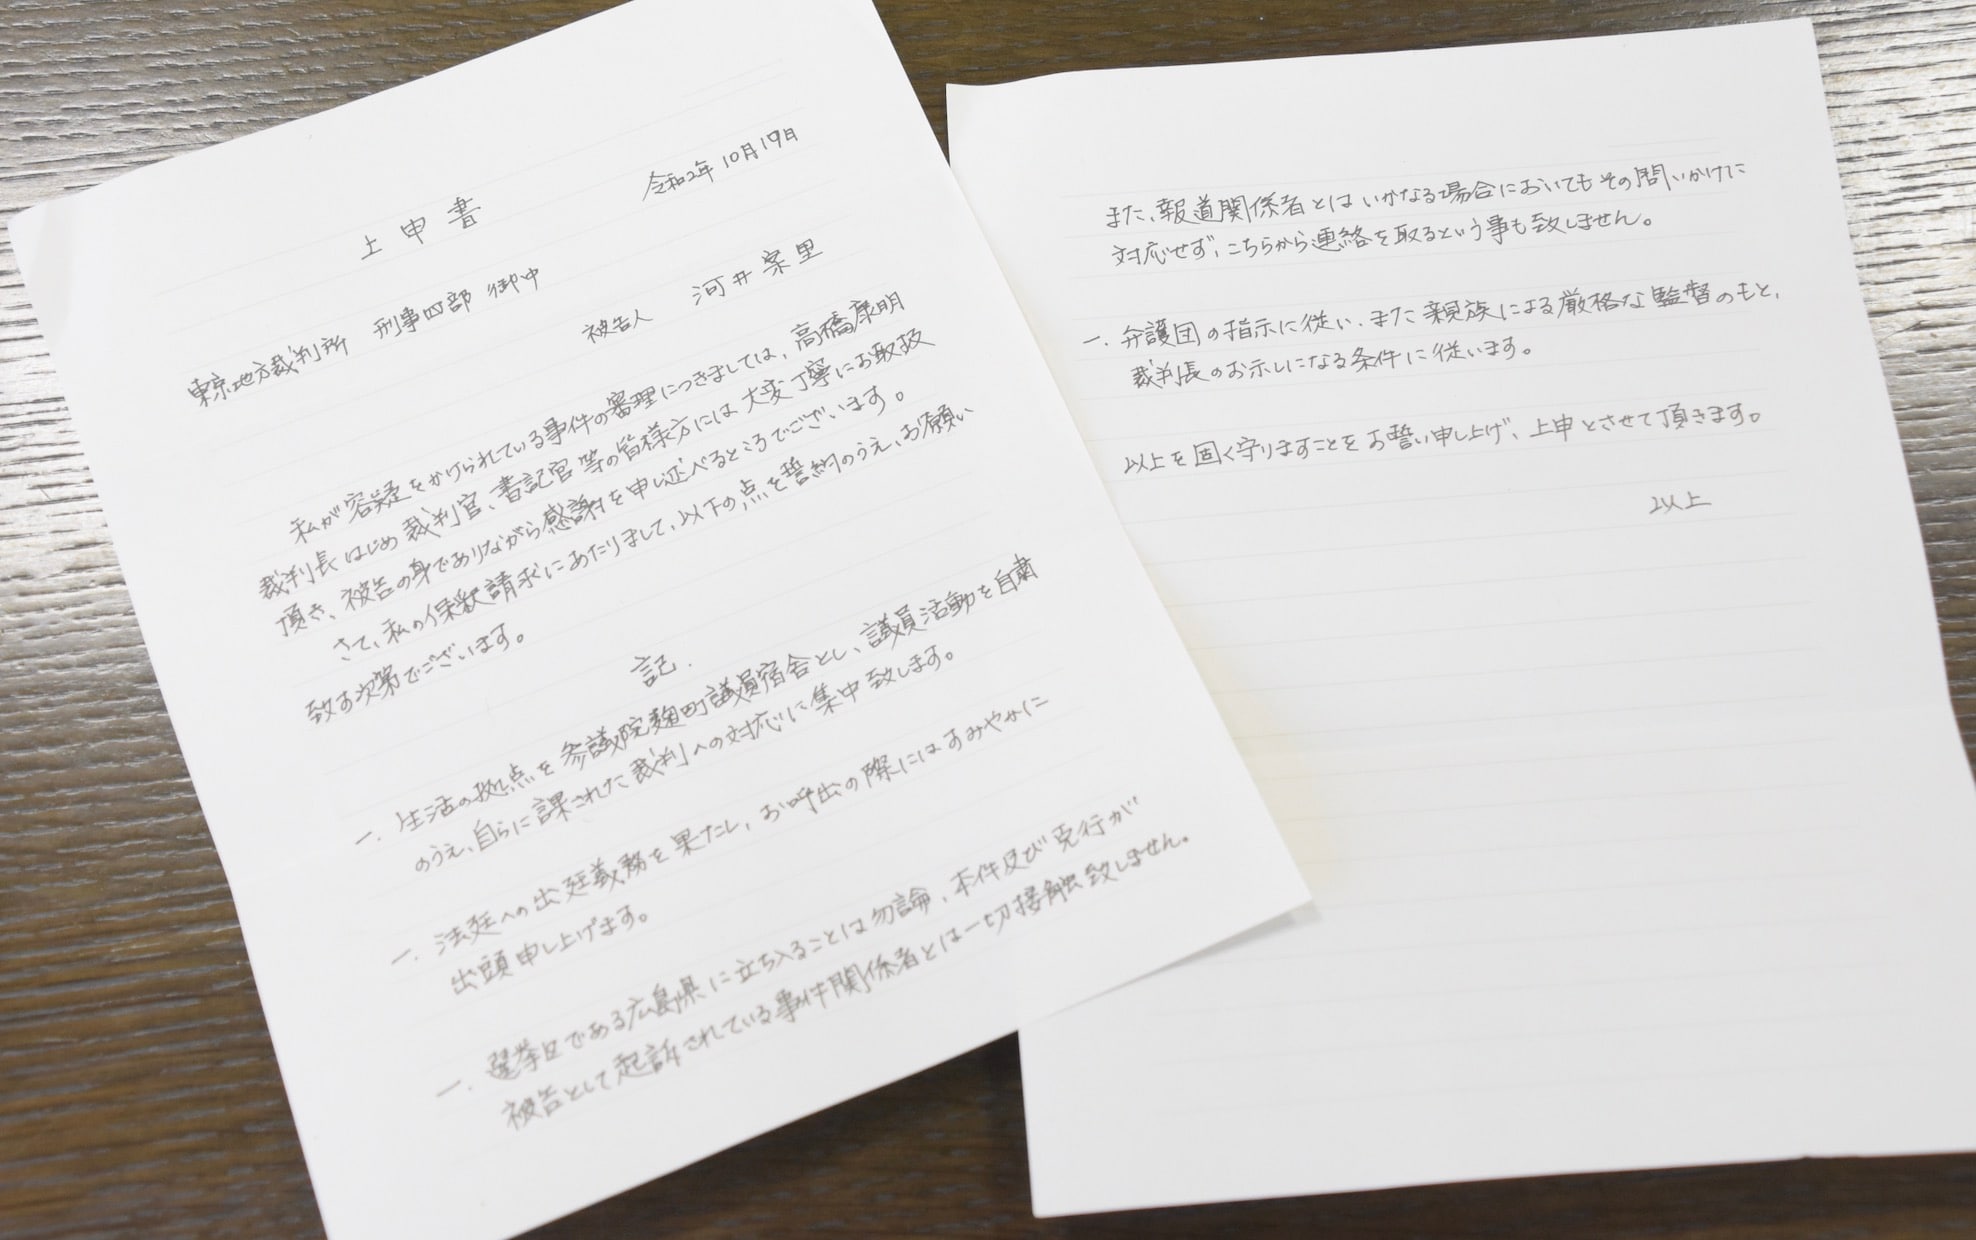 令和2年10月19日
上申書
東京地方裁判所 刑事四部 御中
被告人 河井案里
私が容疑をかけられている事件の審理につきましては、高橋康明
裁判長はじめ裁判官、書記官等の皆様方には大変丁寧にお取扱
頂き、被告の身でありながら感謝を申し述べるところでございます。
さて、私の保釈請求にあたりまして、以下の点を誓約のうえ、お願い
致す次第でございます。
記.
一. 生活の拠点を参議院麹町議員宿舎とし、議員活動を自粛
のうえ、自らに課された裁判への対応に集中致します。
一. 法廷への出廷義務を果たし、お呼出の際にはすみやかに
出頭申し上げます。
一. 選挙区である広島県に立ち入ることは勿論、本件及び克行が
被告として起訴されている事件関係者とは一切接触致しません。
また、報道関係者とはいかなる場合においてもその問いかけに
対応せず、こちらから連絡を取るという事も致しません。
一. 弁護団の指示に従い、また親族による厳格な監督のもと、
裁判長のお示しになる条件に従います。
以上を固く守りますことをお誓い申し上げ、上申とさせて頂きます。
以上